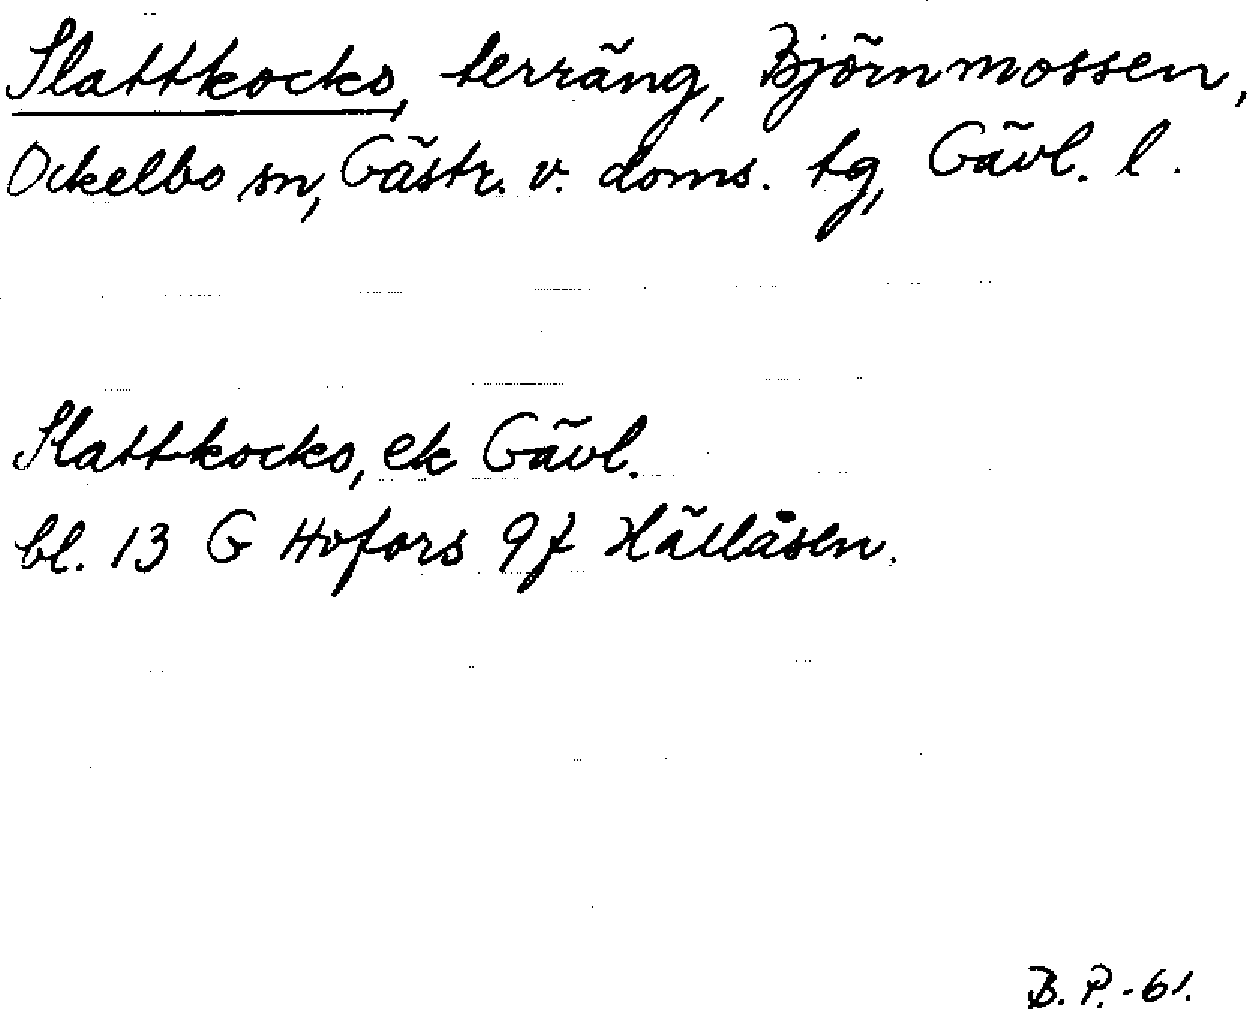 Slattkocko, terräng, Björnmossen,
Ockelbo sn, Gästr. v. doms. tg, Gävl. l.
Slattkocko, ek Gävl.
bl. 13 G Hofors 9f Hällåsen.
B. P. -61.